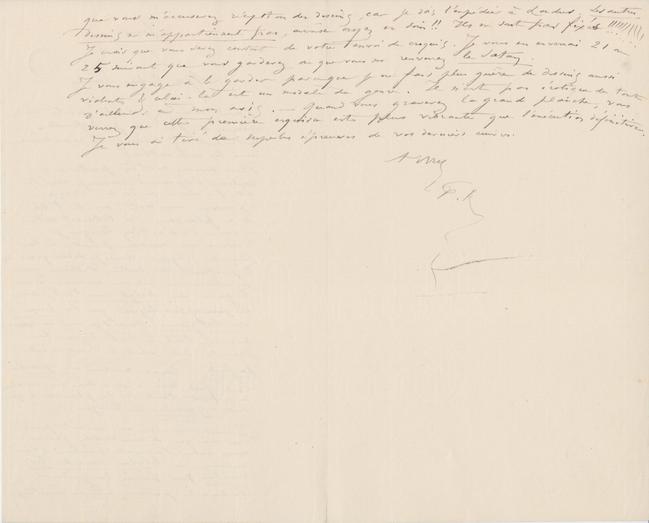 que vous m'accuserez réception des dessins, car je dois l'expédier à Londres, les autres
dessins ne m'appartiennent pas, ayez en soin!! Ils ne sont pas fixés!!!!!!!!!
Je crois que vous serez content de votre envoi de croquis. Je vous en enverrai 21 ou
25 suivant que vous garderez ou que vous me renverrez le Satan.
Je vous engage à le garder parce que je ne fais plus guère de dessins aussi
violents & celui-là est un modèle du genre. Il n'est pas érotique du tout
d'ailleurs à mon avis. — Quand vous graverez la grande planche, vous
verrez que cette première esquisse est plus vibrante que l'exécution définitive.
Je vous ai tiré de superbes épreuves de vos derniers cuivres.
à vous
F. R